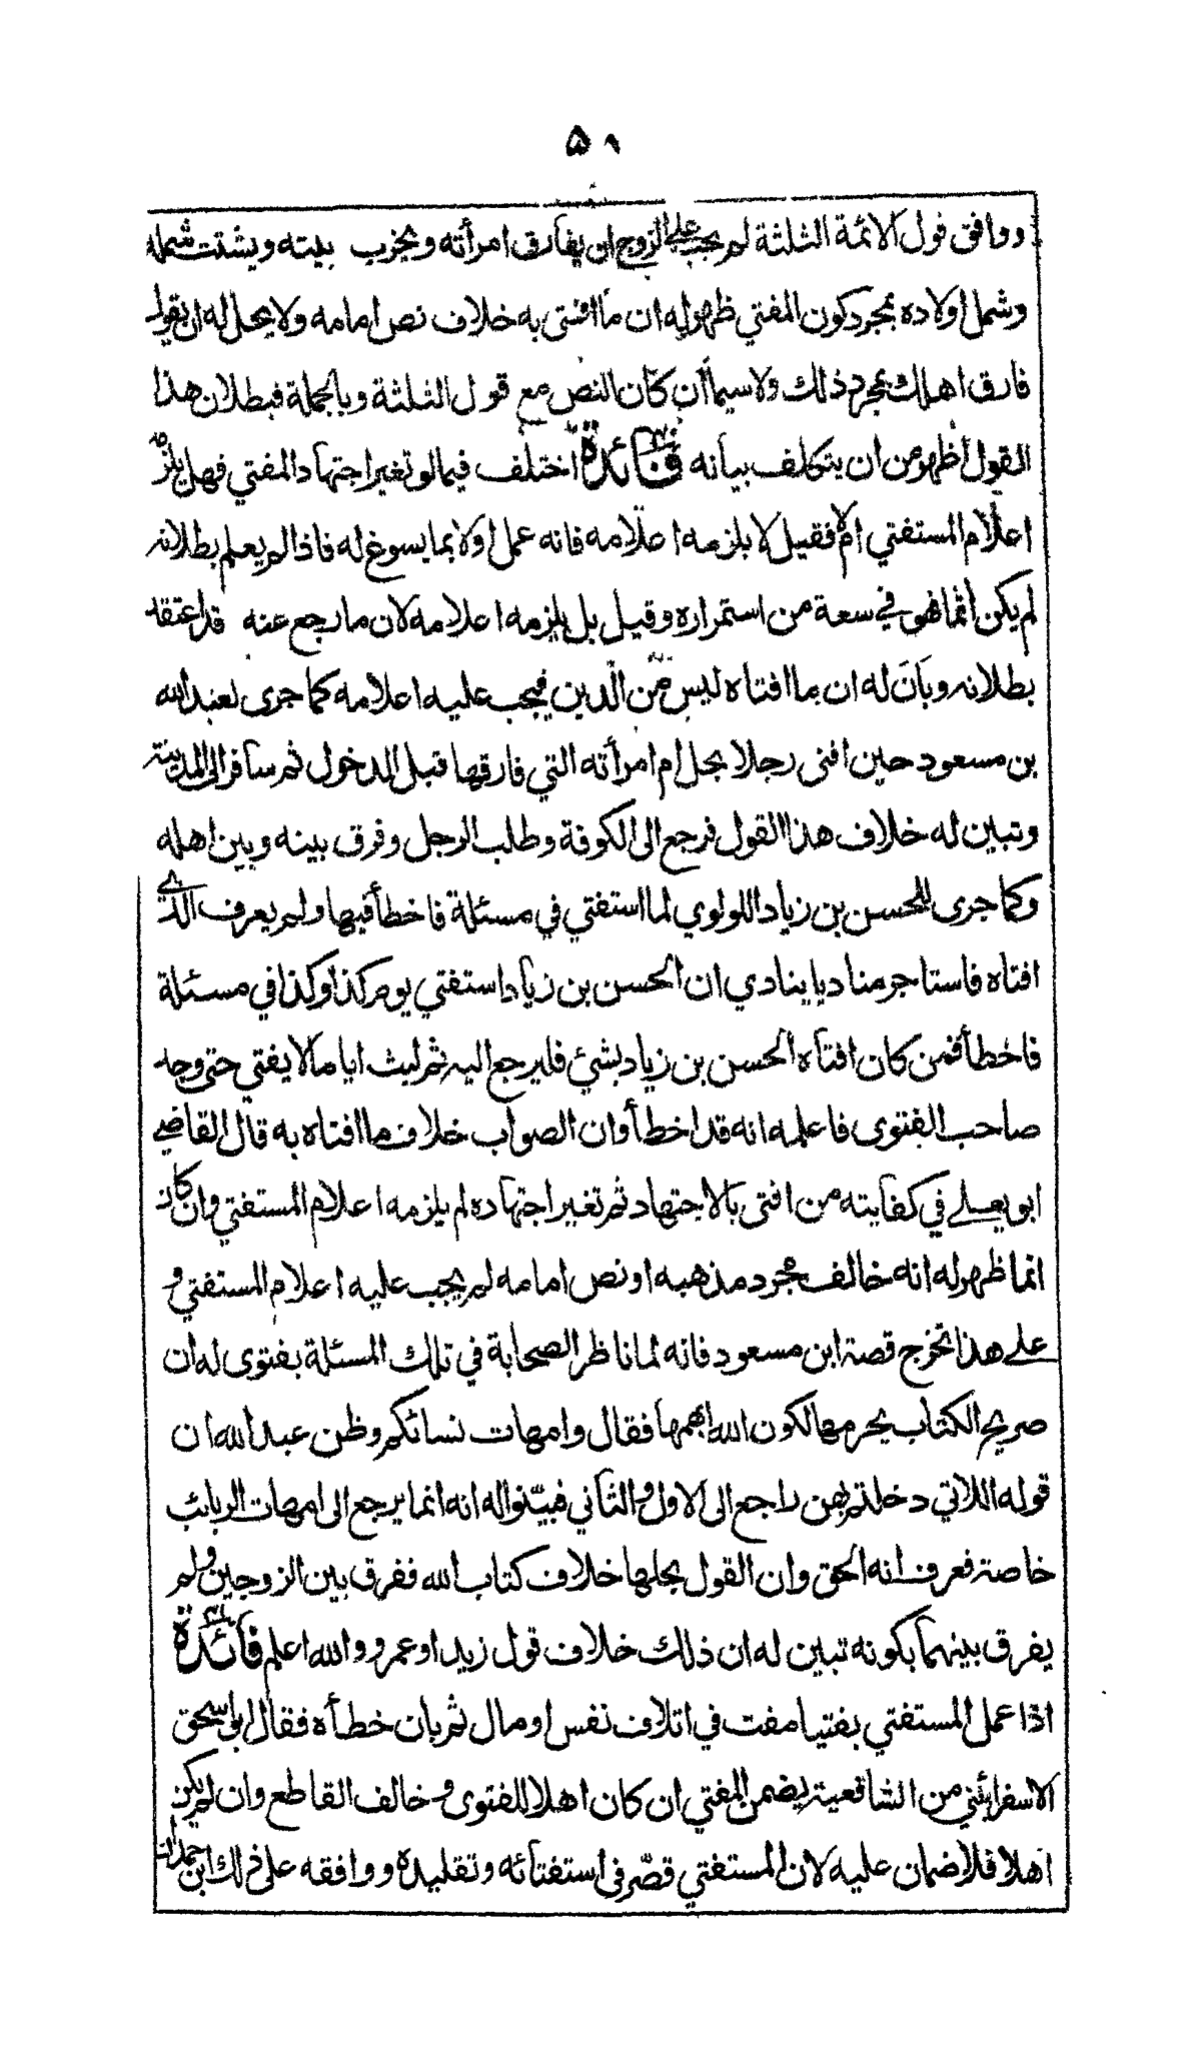 ۵۸
ووافق قول الائمة الثلثة لم يجب على الزوج ان يفارق امرأته ويخرب بيته ويشتت شمله
وشمل اولاده بمجرد كون المفتي ظهر له ان ما افتى به خلاف نص امامه ولا يحل له ان يقول
فارق اهلك بمجرد ذلك ولا سيما أن كان النص مع قول الثلثة وبالجملة فبطلان هذا
القول اظهر من ان يتكلف بيانه فائدة اختلف فيما لو تغير اجتهاد المفتي فهل يلزمه
اعلام المستفتي ام لا فقيل لا يلزمه اعلامه فانه عمل اولا بما يسوغ له فاذا لم يعلم بطلانه
لم يكن آثما فهو في سعة من استمراره وقيل بل يلزمه اعلامه لان ما رجع عنه قد اعتقد
بطلانه وبان له ان ما افتاه ليس من الدين فيجب عليه اعلامه كما جرى لعبد الله
بن مسعود حين افتى رجلا بحل ام امرأته التي فارقها قبل الدخول ثم سافر الى المدينة
وتبين له خلاف هذا القول فرجع الى الكوفة وطلب الرجل وفرق بينه وبين اهله
وكما جرى للحسن بن زياد اللولوي لما استفتي في مسئلة فاخطأ فيها ولم يعرف الذي
افتاه فاستاجر مناديا ينادي ان الحسن بن زياد استفتي يوم كذا وكذا في مسئلة
فاخطأ فمن كان افتاه الحسن بن زياد بشئ فليرجع اليه ثم لبث اياما لا يفتي حتى وجد
صاحب الفتوى فاعلمه انه قد اخطأ وان الصواب خلاف ما افتاه به قال القاضي
ابو يعلى في كفايته من افتى بالاجتهاد ثم تغير اجتهاده لم يلزمه اعلام المستفتي وان كان
انما ظهر له انه خالف مجرد مذهبه او نص امامه لم يجب عليه اعلام المستفتي و
على هذا تخرج قصة ابن مسعود فانه لما ناظر الصحابة في تلك المسئلة بفتوى له ان
صريح الكتاب يحرمها لكون الله ابهمها فقال وامهات نسائكم وظن عبد الله ان
قوله اللاتي دخلتم بهن راجع الى الاول والثاني فبيّنوا له انه انما يرجع الى امهات الربائب
خاصة فعرف انه الحق وان القول بحلها خلاف كتاب الله ففرق بين الزوجين ولم
يفرق بينهما بكونه تبين له ان ذلك خلاف قول زيد او عمرو والله اعلم فائدة
اذا عمل المستفتي بفتيا مفت في اتلاف نفس او مال ثم بان خطأه فقال ابو اسحق
الاسفرائني من الشافعية يضمن المفتي ان كان اهلا للفتوى وخالف القاطع وان لم يكن
اهلا فلا ضمان عليه لان المستفتي قصّر في استفتائه وتقليده ووافقه على ذلك ابن حمدان